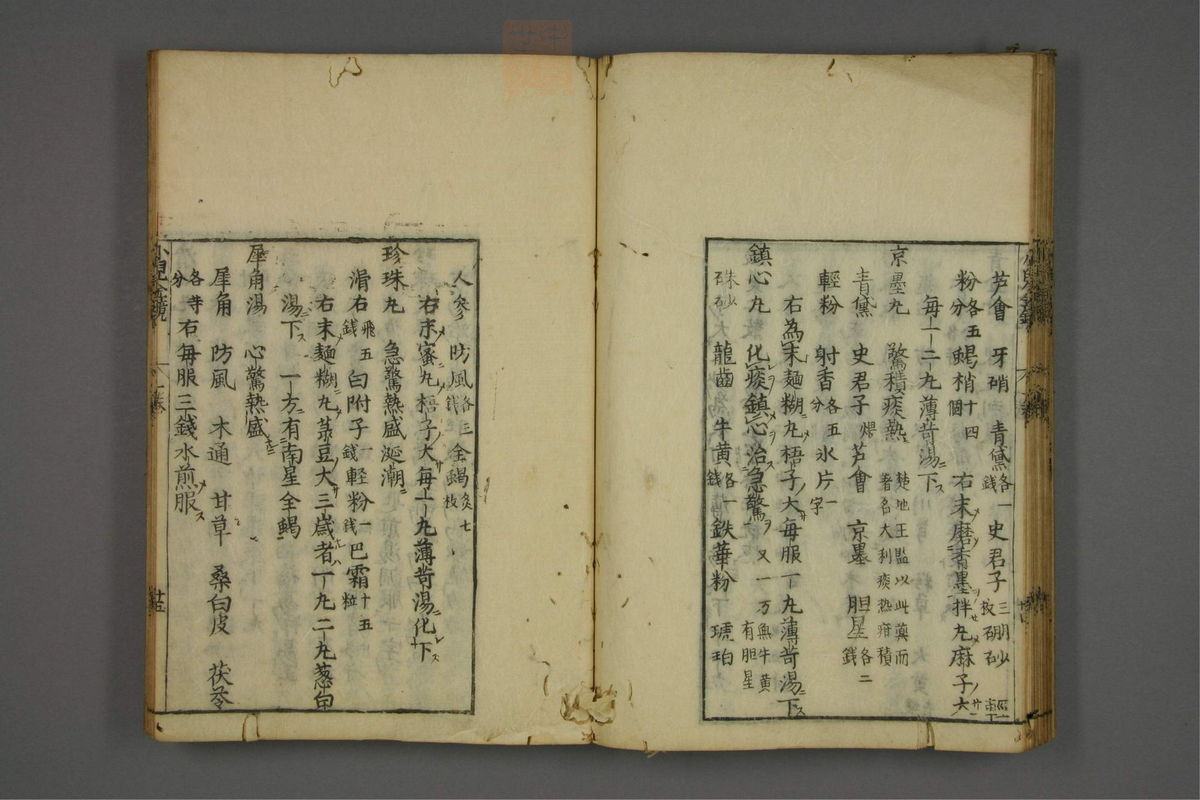 芦會 牙硝 青黛各一錢 史君子三枚 硼砂 輕
粉各五分 蝎梢十四個 右末磨香墨拌丸麻子大ノサ
毎一二丸薄苛湯ニ下ス
京墨丸 驚積痰熱 楚地王監以此藥而著名大利痰熱疳積
青黛 史君子煨 芦會 京墨 胆星各二錢
輕粉 射香各五分 氷片一字
右為末麵糊丸梧子大毎服一丸薄苛湯ニ下ス
鎮心丸 化痰鎮心治急驚 又一方無牛黄有胆星
硃砂 龍齒 牛黄各一錢 鉄華粉 琥珀
人參 防風各三錢 全蝎炙七枚
右末蜜丸梧子大毎一丸薄苛湯化下
珍珠丸 急驚熱盛涎潮
滑石飛五錢 白附子一錢 輕粉一錢 巴霜十五粒
右末麵糊丸菉豆大三歳者一丸二丸葱白
湯下ス 一方ニ有南星全蝎
犀角湯 心驚熱盛
犀角 防風 木通 甘草 桑白皮 茯苓
各等分 右毎服三錢水煎服ス